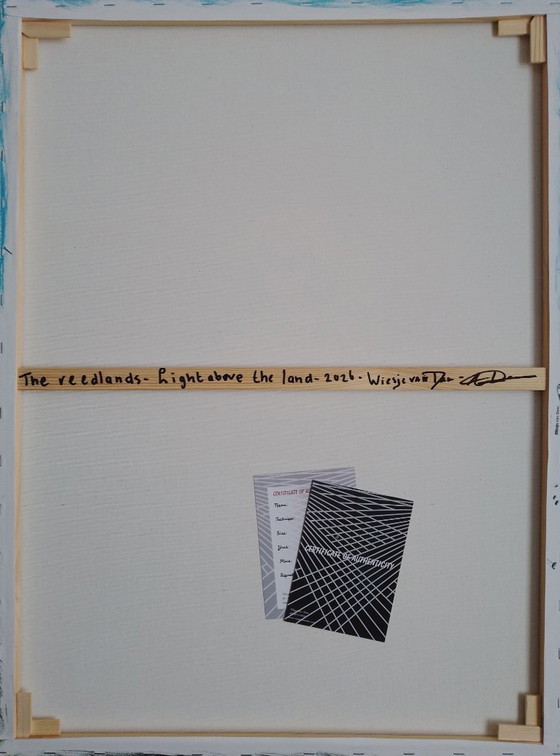 The reedlands - Light above the land - 2026 - Wiesje van Dam
CERTIFICATE OF
Name:
Technique:
Size:
Year:
Place:
CERTIFICATE OF AUTHENTICITY